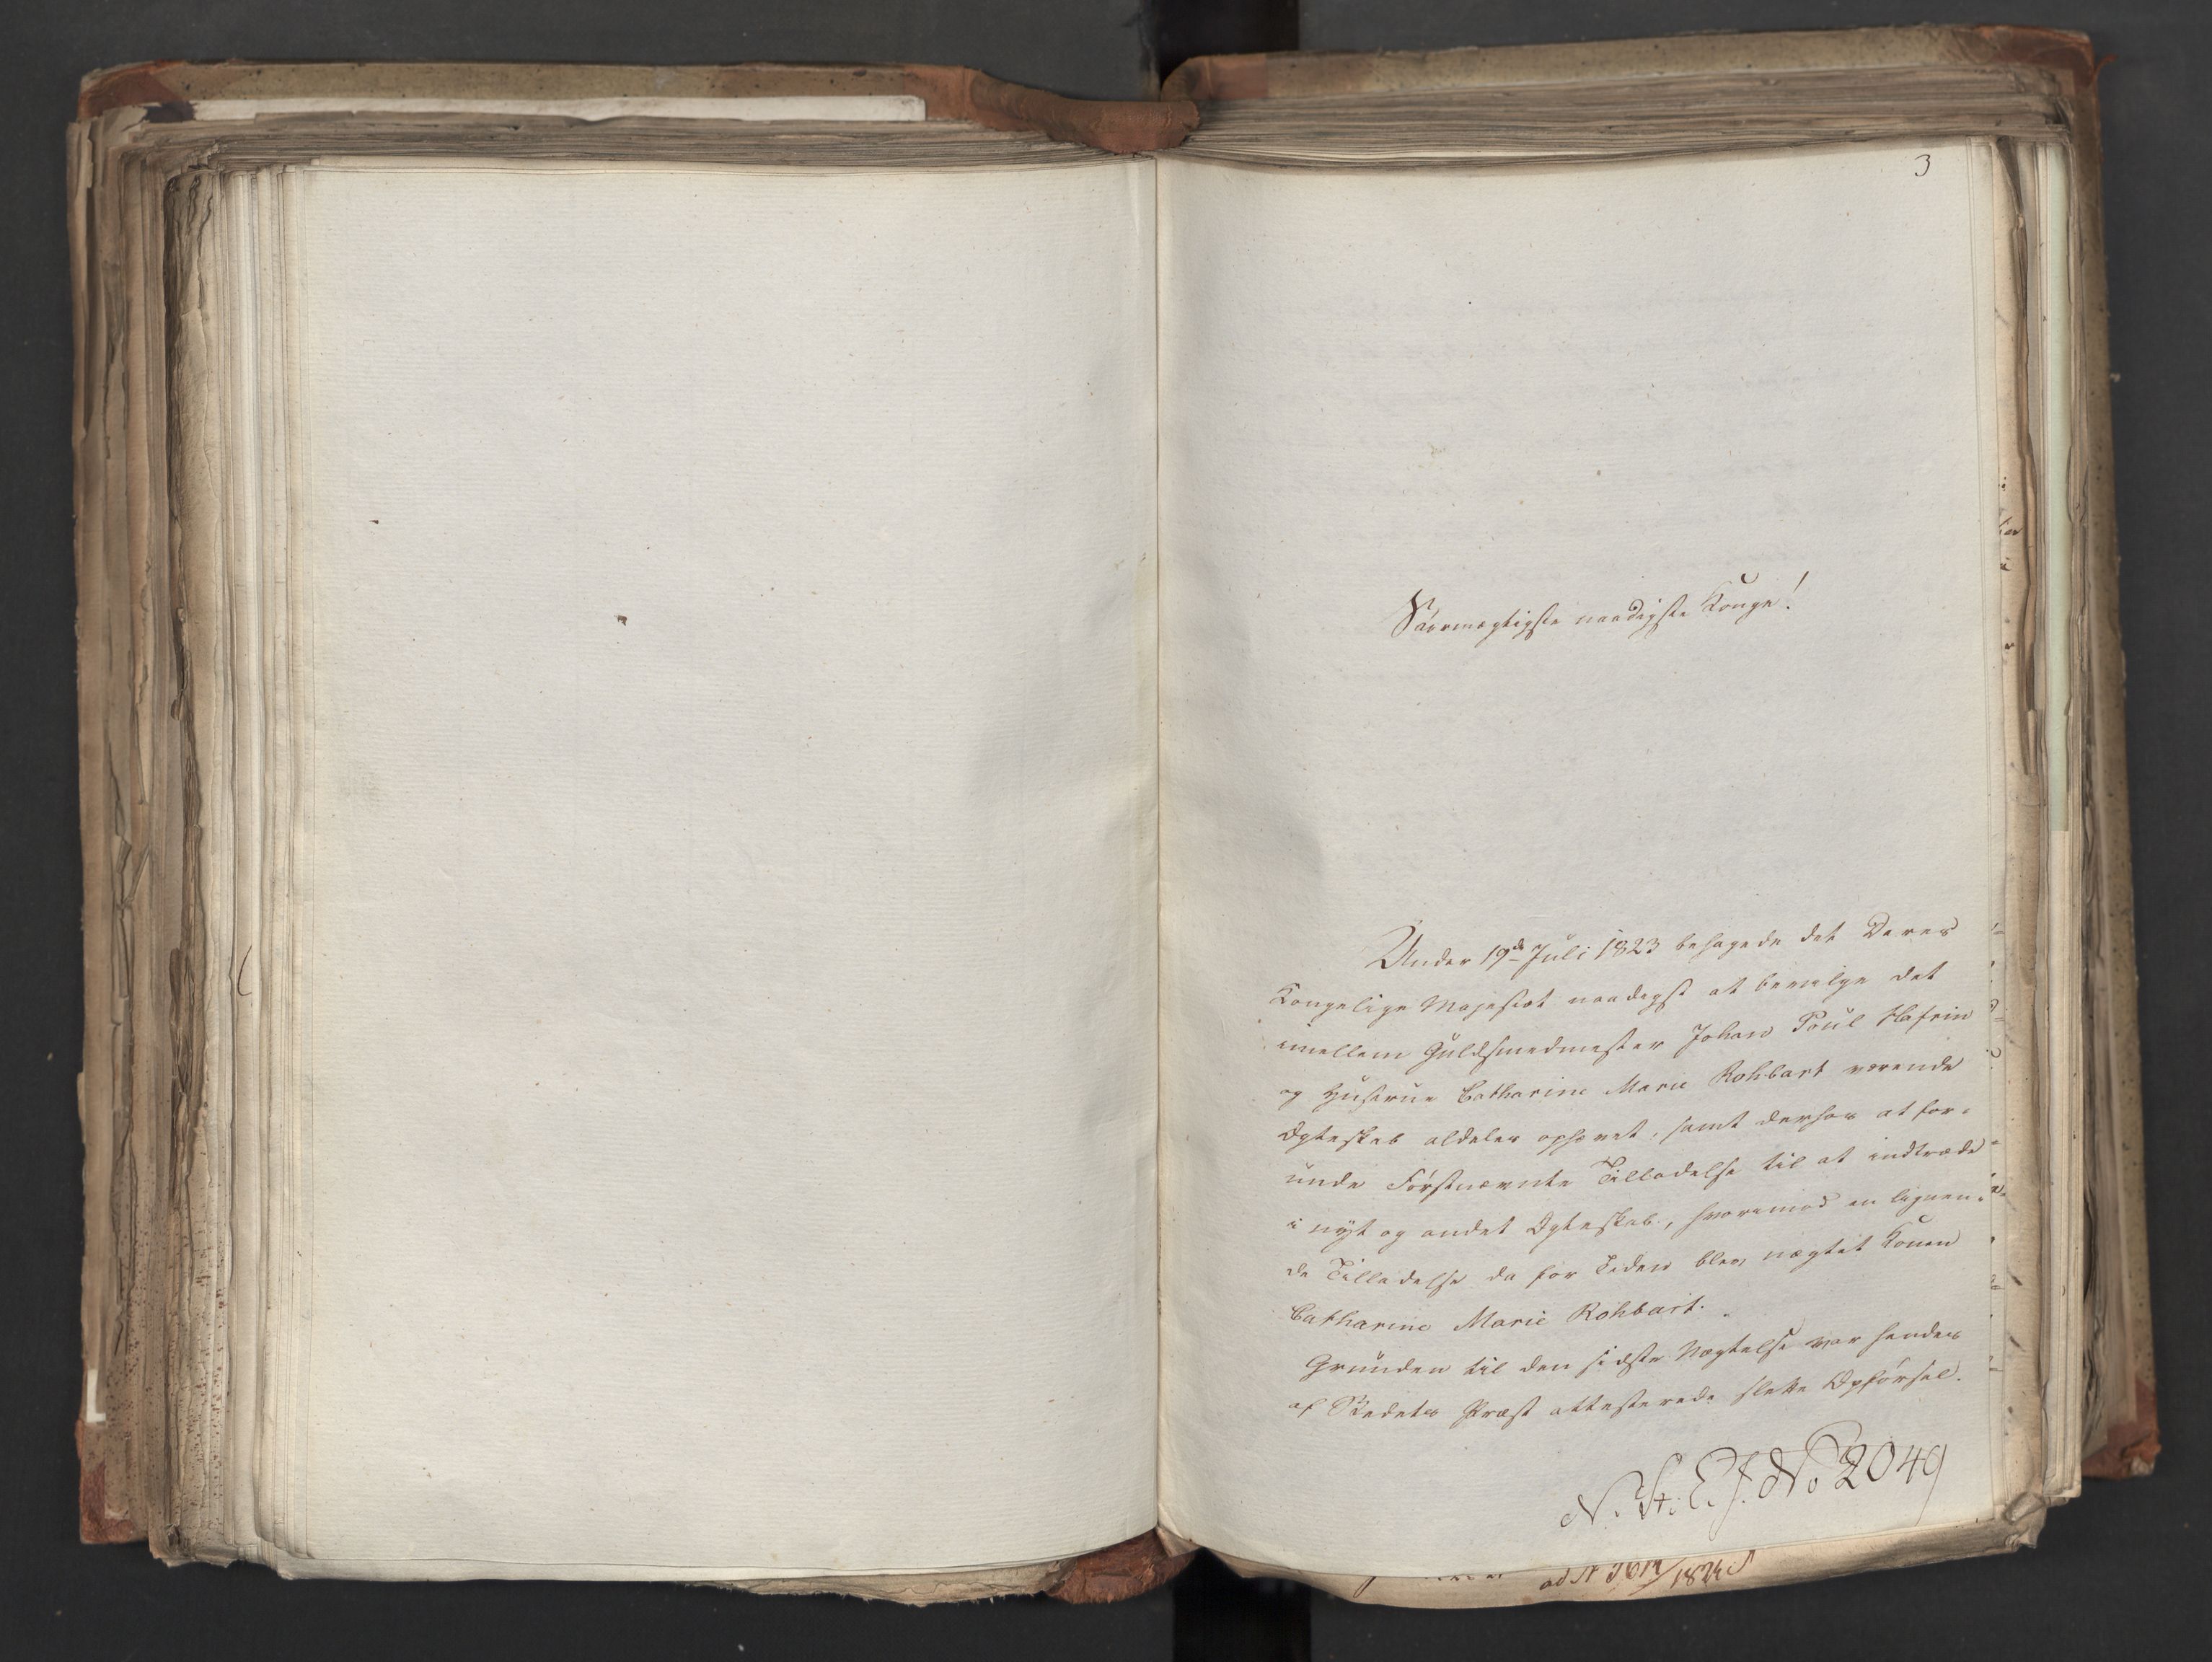 3
Stormægtigste naadigste Konge!
Under 19de Juli 1823 behagede det Deres
Kongelige Majestæt naadigst at bevilge det
imellem Guldsmedmester Johan Poul Hafrin
og Hustrue Catharine Marie Rohbart værende
Ægteskab aldeles ophævet, samt derhos at for-
unde Førstnævnte Tilladelse til at indtræde
i nyt og andet Ægteskab, hvorimod en lignen-
de Tilladelse da for Tiden blev nægtet Konen
Catharine Marie Rohbart.
Grunden til den sidste Nægtelse var hendes
af Stedets Præst attesterede slette Opførsel.
N. St. E. J. No 2049